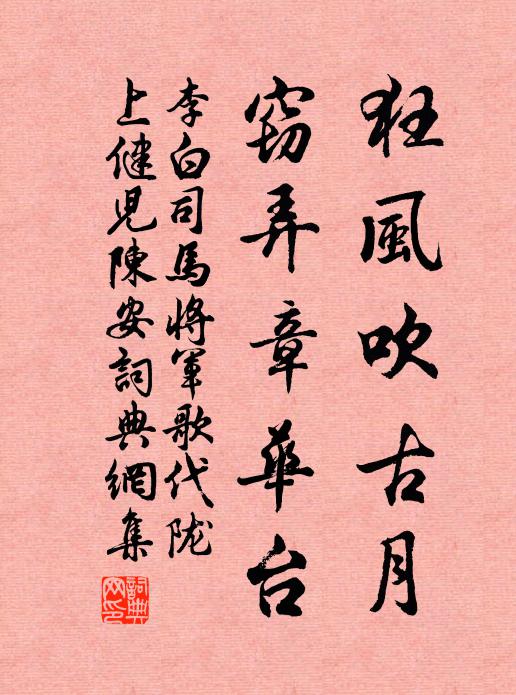 狂風吹古月
窃弄章華台
李白司馬将軍歌代陇
上健児陳安詞典網集
詞典网印